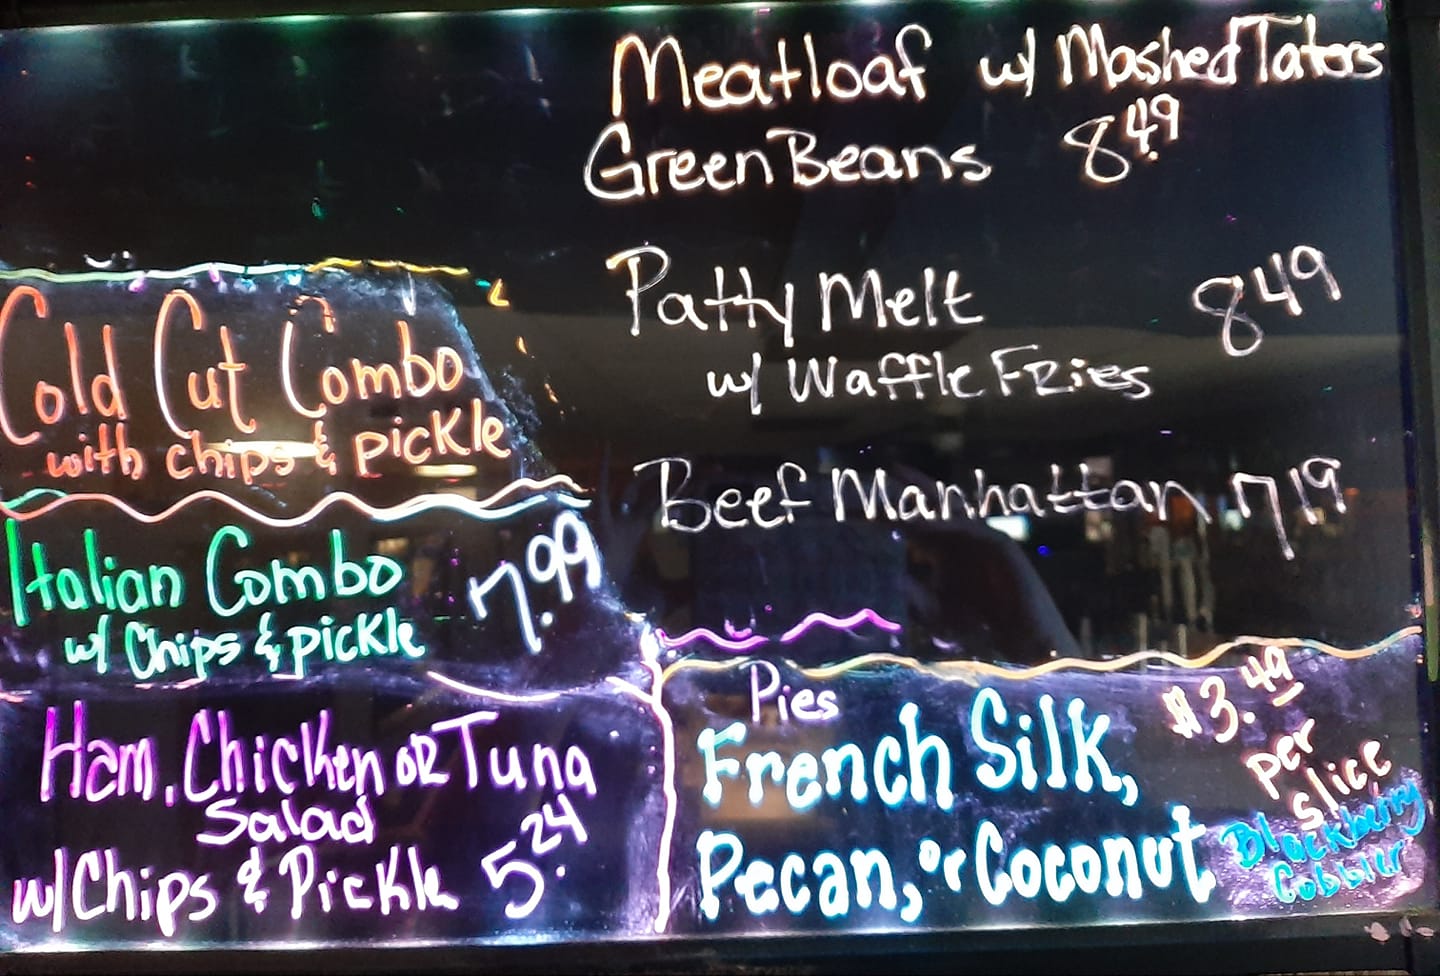 Meatloaf w/ Mashed Taters
Green Beans 8.49
Patty Melt 8 49
w/ Waffle Fries
Beef Manhattan 7 19
Cold Cut Combo
with chips & pickle
Italian Combo 7.99
w/ Chips & pickle
Ham, Chicken or Tuna
Salad
w/ Chips & Pickle 5.24
Pies
French Silk,
Pecan, or Coconut
$3.49
per
slice
Blackberry
Cobbler